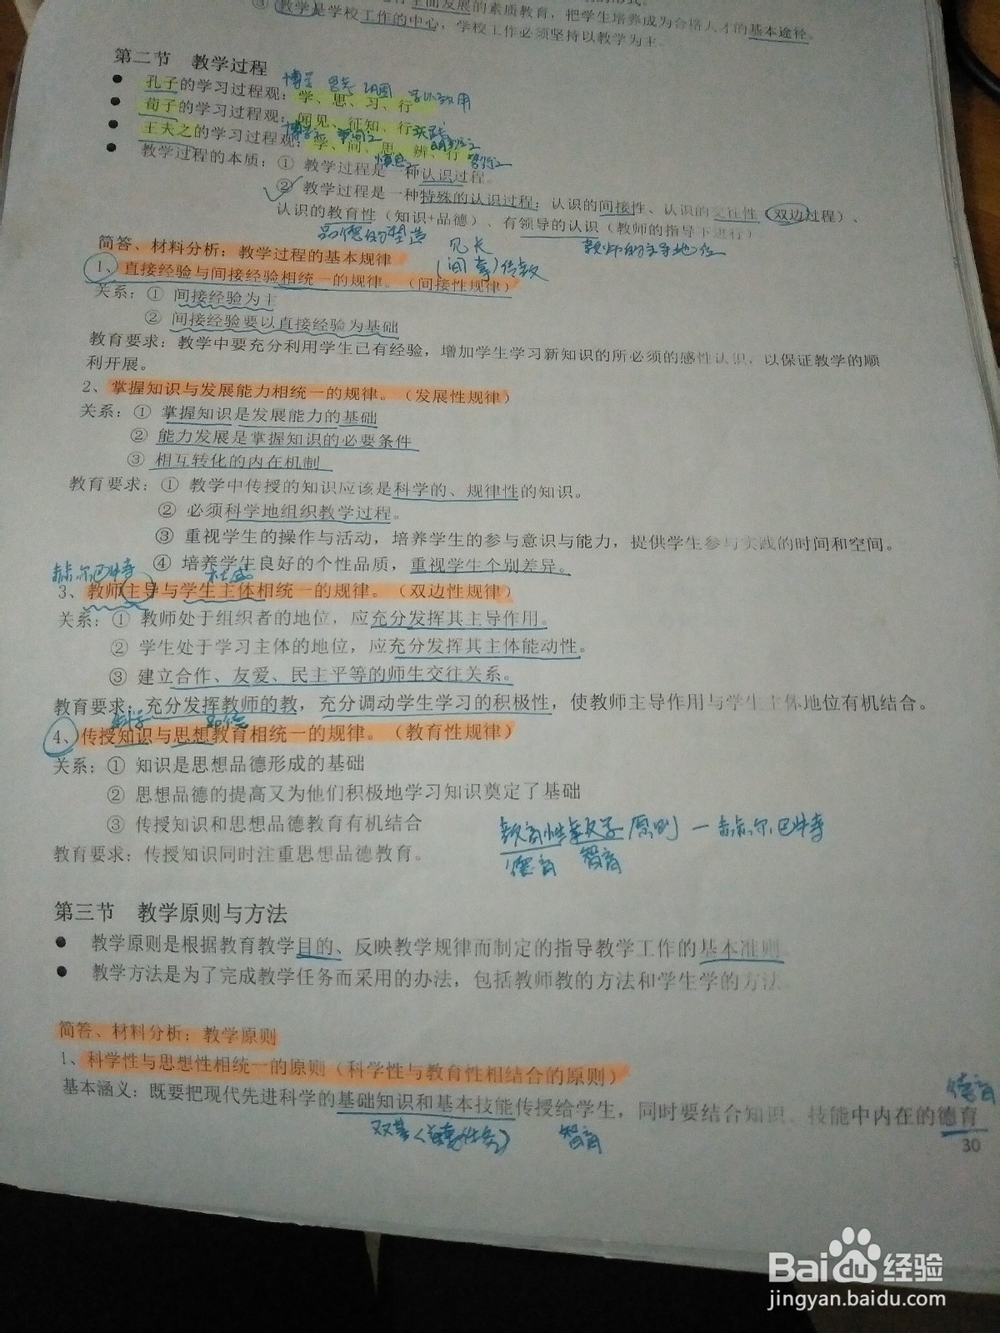 全面发展的素质教育，把学生培养成为合格人才的基本途径。
③ 教学是学校工作的中心，学校工作必须坚持以教学为主。
第二节 教学过程
博学 思考 巩固 学以致用
● 孔子的学习过程观：学、思、习、行
● 荀子的学习过程观：闻见、征知、行
● 王夫之的学习过程观：学、问、思、辨、行
● 教学过程的本质：① 教学过程是一种认识过程。
② 教学过程是一种特殊的认识过程：认识的间接性、认识的交往性（双边过程）、
认识的教育性（知识+品德）、有领导的认识（教师的指导下进行）
品德的塑造
教师的主导地位
简答、材料分析：教学过程的基本规律
1、直接经验与间接经验相统一的规律。（间接性规律）
关系：① 间接经验为主
② 间接经验要以直接经验为基础
教育要求：教学中要充分利用学生已有经验，增加学生学习新知识的所必须的感性认识，以保证教学的顺
利开展。
2、掌握知识与发展能力相统一的规律。（发展性规律）
关系：① 掌握知识是发展能力的基础
② 能力发展是掌握知识的必要条件
③ 相互转化的内在机制
教育要求：① 教学中传授的知识应该是科学的、规律性的知识。
② 必须科学地组织教学过程。
③ 重视学生的操作与活动，培养学生的参与意识与能力，提供学生参与实践的时间和空间。
④ 培养学生良好的个性品质，重视学生个别差异。
赫尔巴特 杜威
3、教师主导与学生主体相统一的规律。（双边性规律）
关系：① 教师处于组织者的地位，应充分发挥其主导作用。
② 学生处于学习主体的地位，应充分发挥其主体能动性。
③ 建立合作、友爱、民主平等的师生交往关系。
教育要求：充分发挥教师的教，充分调动学生学习的积极性，使教师主导作用与学生主体地位有机结合。
4、传授知识与思想教育相统一的规律。（教育性规律）
关系：① 知识是思想品德形成的基础
② 思想品德的提高又为他们积极地学习知识奠定了基础
③ 传授知识和思想品德教育有机结合
教育要求：传授知识同时注重思想品德教育。
教育性教学原则 — 赫尔巴特
德育 智育
第三节 教学原则与方法
● 教学原则是根据教育教学目的、反映教学规律而制定的指导教学工作的基本准则。
● 教学方法是为了完成教学任务而采用的办法，包括教师教的方法和学生学的方法。
简答、材料分析：教学原则
1、科学性与思想性相统一的原则（科学性与教育性相结合的原则）
德育
基本涵义：既要把现代先进科学的基础知识和基本技能传授给学生，同时要结合知识、技能中内在的德育
双基 智育
30
Baidu经验
jingyan.baidu.com